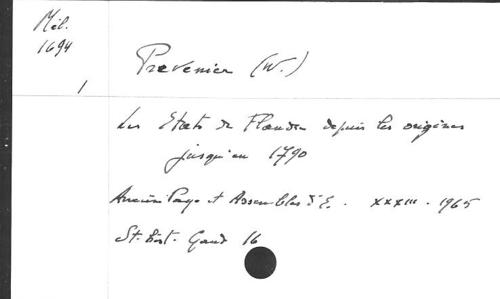 Mél.
1694
1
Prevenier (W.)
Les Etats de Flandre depuis les origines
jusqu'en 1790
Anciens Pays et Assemblées d'E. . XXXIII . 1965
St. hist. Gand 16